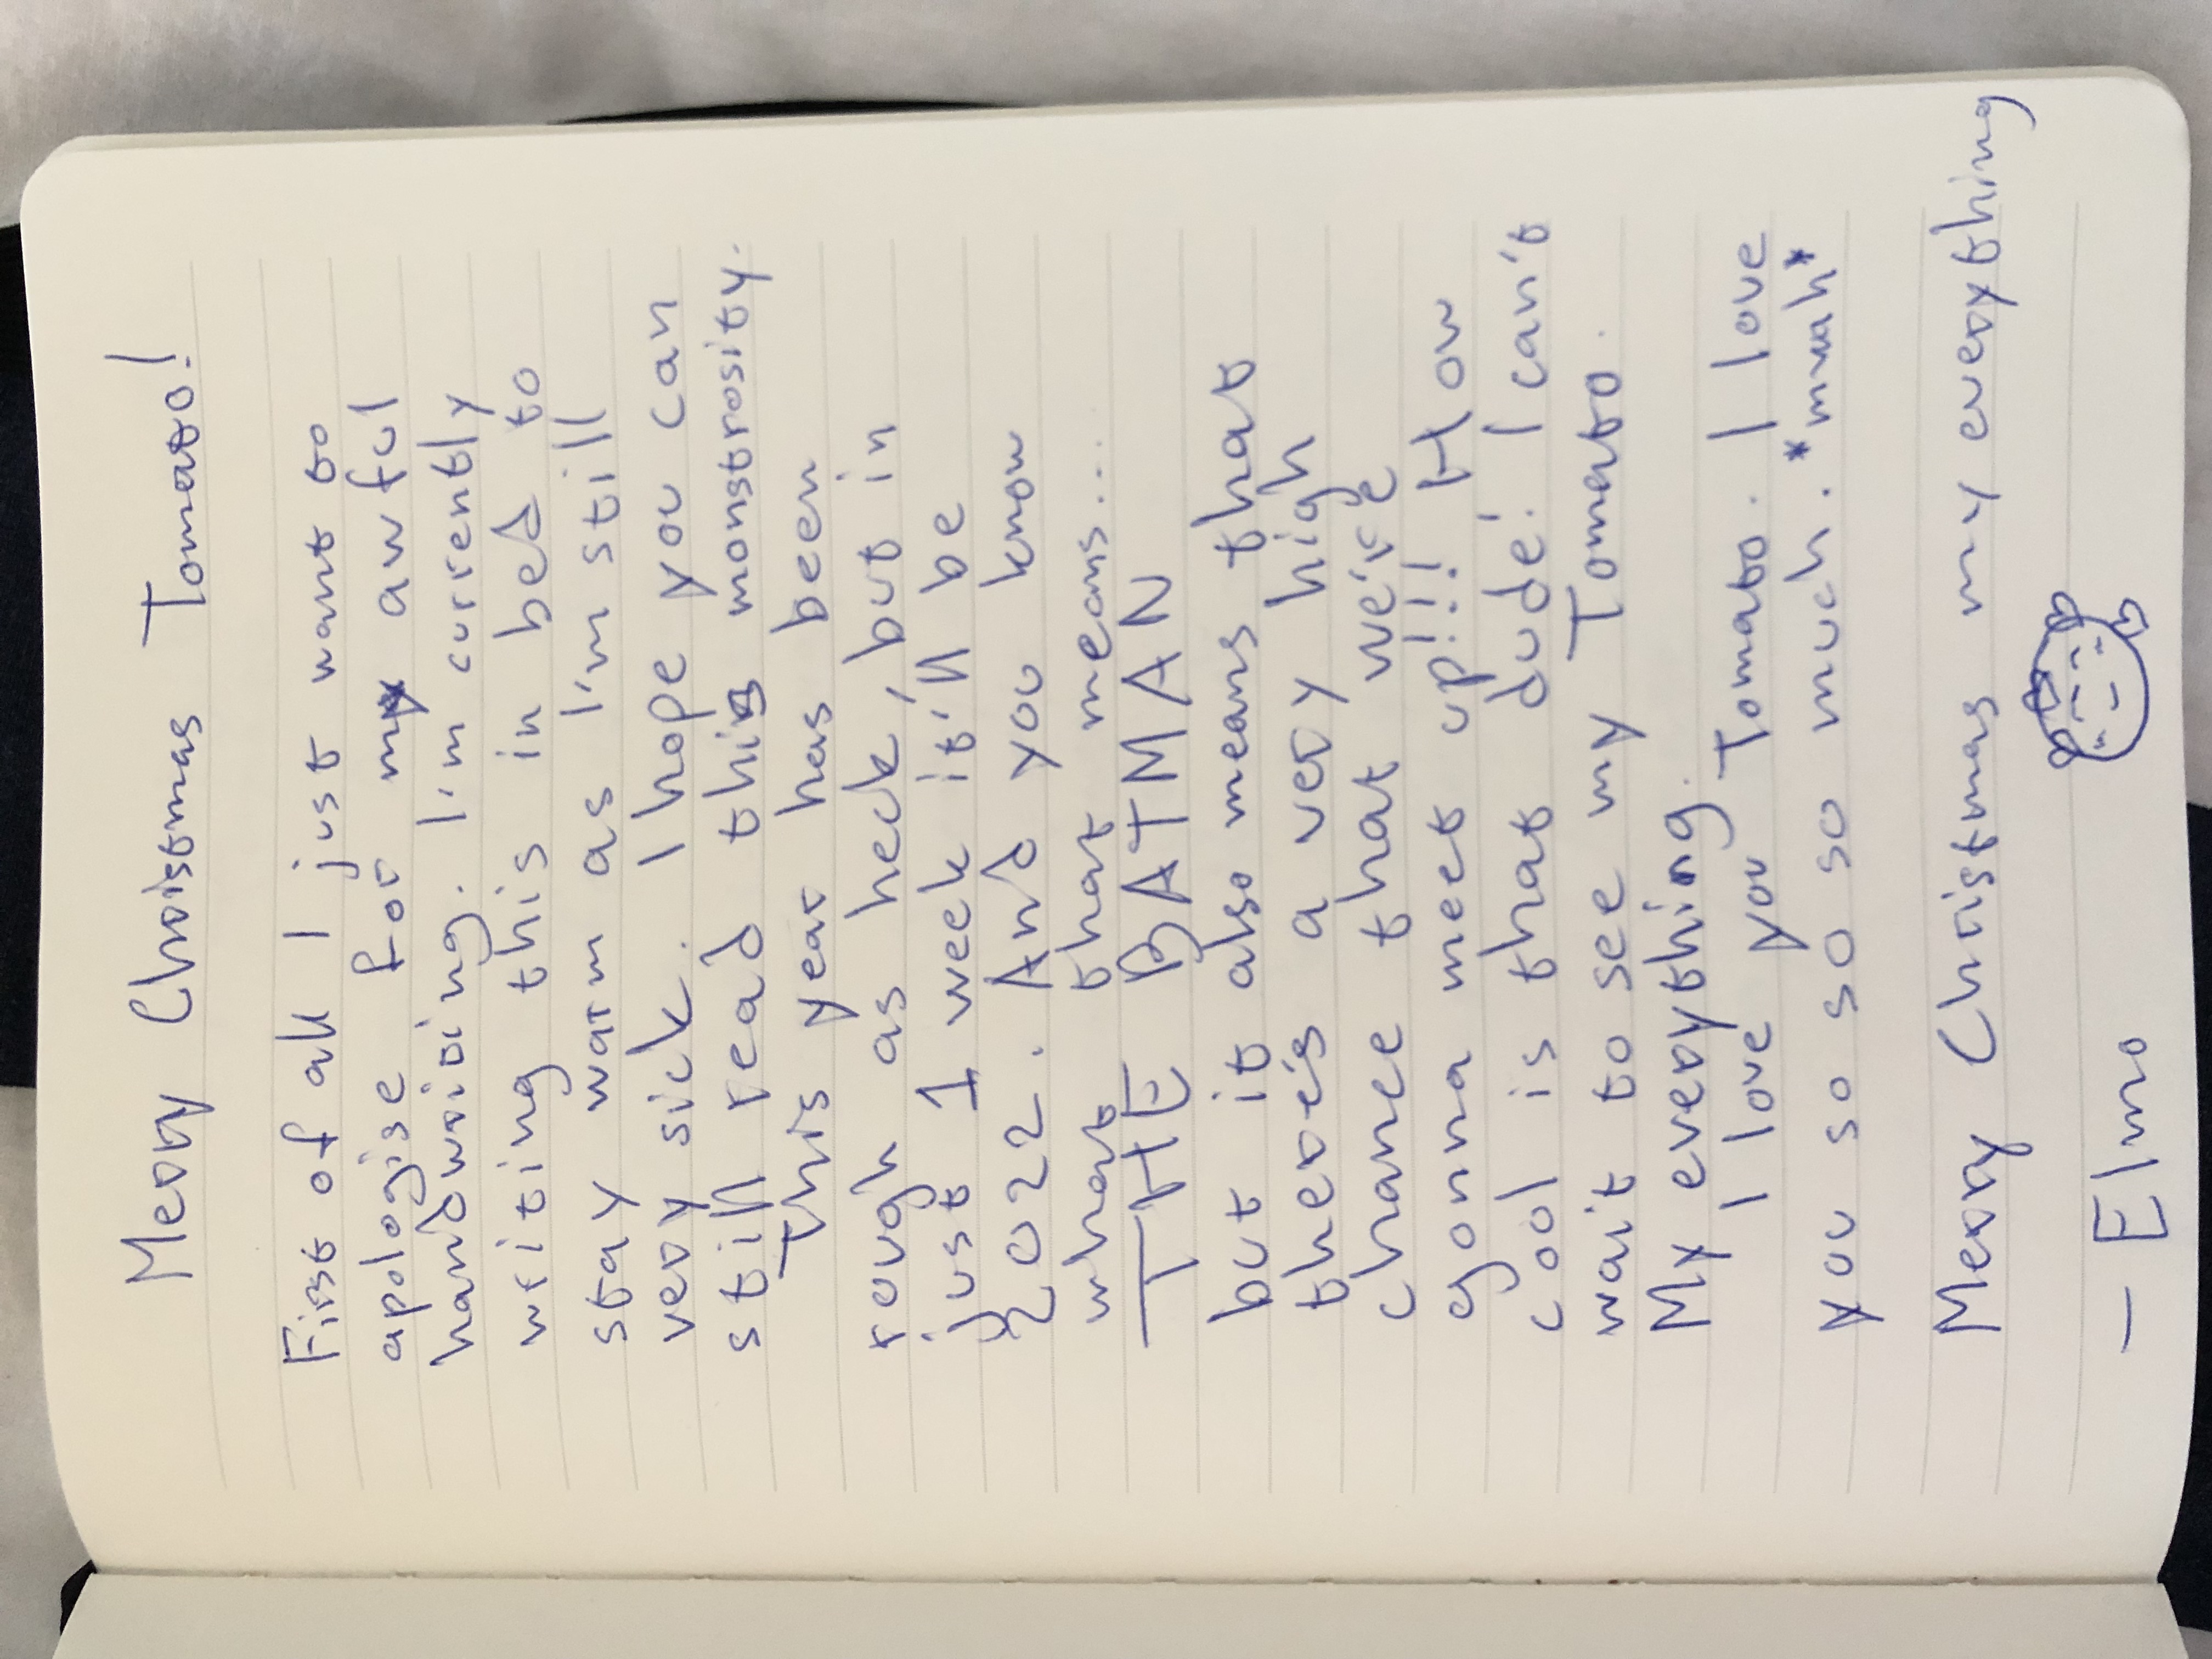 Merry Christmas Tomato!
First of all I just want to
apologise for my awful
handwriting. I'm currently
writing this in bed to
stay warm as I'm still
very sick. I hope you can
still read this monstrosity.
This year has been
rough as heck, but in
just 1 week it'll be
2022. And you know
what that means...
THE BATMAN
but it also means that
there's a very high
chance that we're
gonna meet up!!! How
cool is that dude! I can't
wait to see my Tomato.
My everything.
I love you Tomato. I love
you so so so much. *mwah*
Merry Christmas my everything
- Elmo